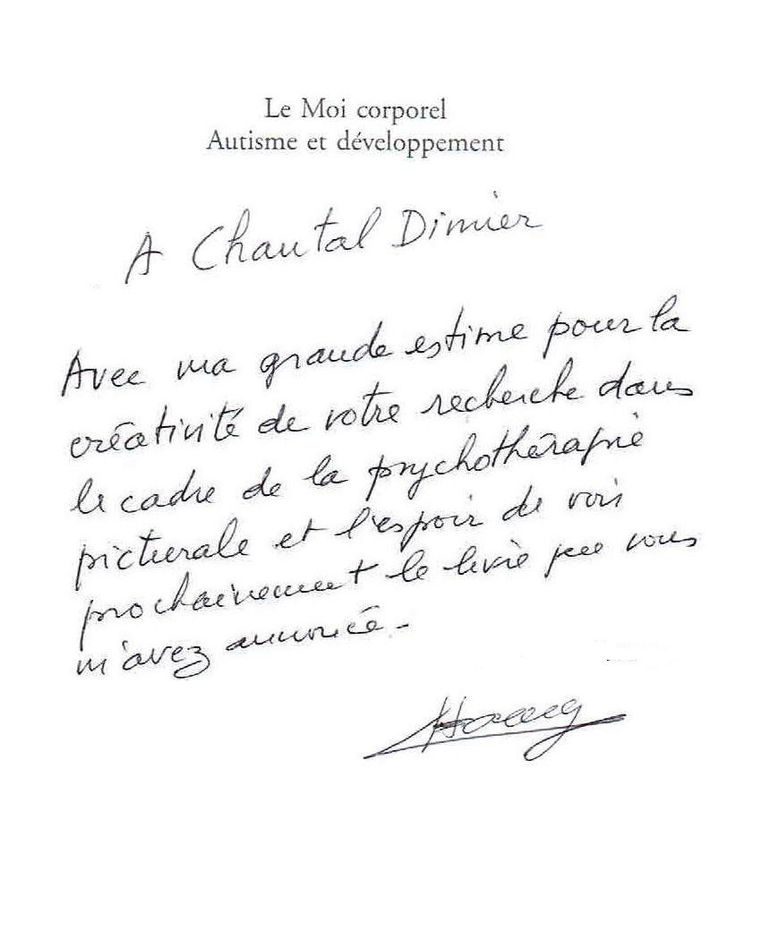 Le Moi corporel
Autisme et développement
A Chantal Dimier
Avec ma grande estime pour la
créativité de votre recherche dans
le cadre de la psychothérapie
picturale et l'espoir de voir
prochainement le livre que vous
m'avez annoncé -
Haag